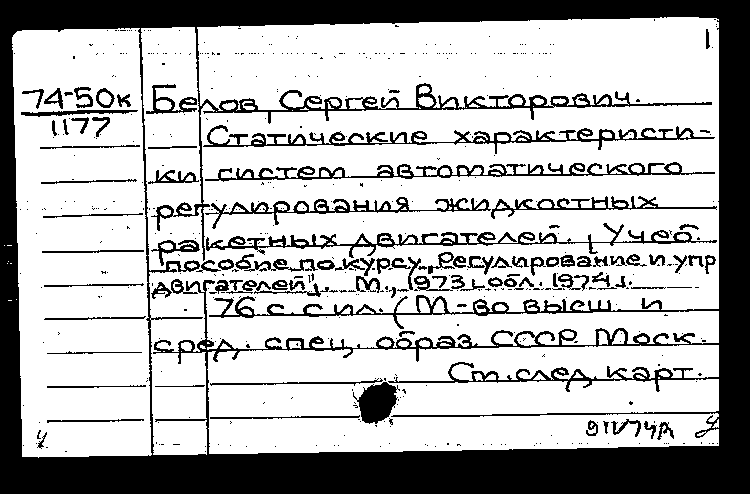 1
74-50к Белов, Сергей Викторович.
1177
Статические характеристи-
ки систем автоматического
регулирования жидкостных
ракетных двигателей. Учеб.
пособие по курсу „Регулирование и упр
двигателей". М., 1973, обл. 1974.
76 с. с ил. (М-во высш. и
сред. спец. образ. СССР. Моск.
См. след. карт.